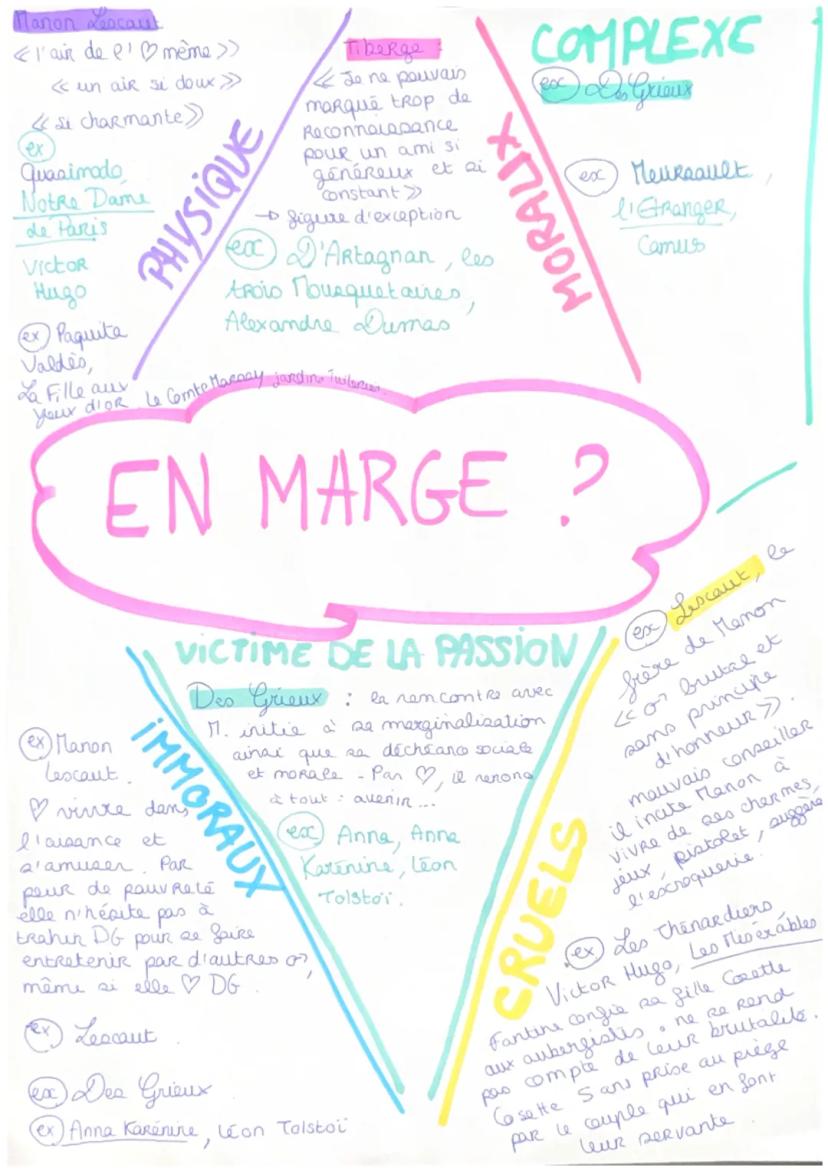 Manon Lescaut
<< l'air de l'♡ même >>
<< un air si doux >>
<< si charmante >>
ex
Quasimodo,
Notre Dame
de Paris
Victor
Hugo
ex Paquita
Valdès,
La Fille aux
yeux d'or. Le Comte Marsay jardins Tuileries.
PHYSIQUE
Tiberge :
<< Je ne pouvais
marqué trop de
Reconnaissance
pour un ami si
généreux et si
constant >>
→ figure d'exception
ex D'Artagnan, les
trois Mousquetaires,
Alexandre Dumas
MORAUX
COMPLEXE
ex Des Grieux
ex Meursault,
l'Etranger,
Camus
EN MARGE ?
VICTIME DE LA PASSION
Des Grieux : la rencontre avec
M. initie à sa marginalisation
ainsi que sa déchéance sociale
et morale - Par ♡, il renonce
à tout : avenir...
ex Anna, Anna
Karénine, Léon
Tolstoï.
IMMORAUX
ex Manon
Lescaut.
♡ vivre dans
l'aisance et
s'amuser. Par
peur de pauvreté
elle n'hésite pas à
trahir DG pour se faire
entretenir par d'autres ♂,
même si elle ♡ DG.
ex Lescaut.
ex Des Grieux
ex Anna Karénine, Léon Tolstoï
CRUELS
ex Lescaut, le
frère de Manon
<< ♂ brutal et
sans principe
d'honneur >>.
mauvais conseiller
il incite Manon à
vivre de ses charmes,
jeux, pistolet, suggère
l'escroquerie.
ex Les Thénardiers
Victor Hugo, Les Misérables
Fantine confie sa fille Cosette
aux aubergistes : ne se rend
pas compte de leur brutalité.
Cosette 5 ans prise au piège
par le couple qui en font
leur servante.